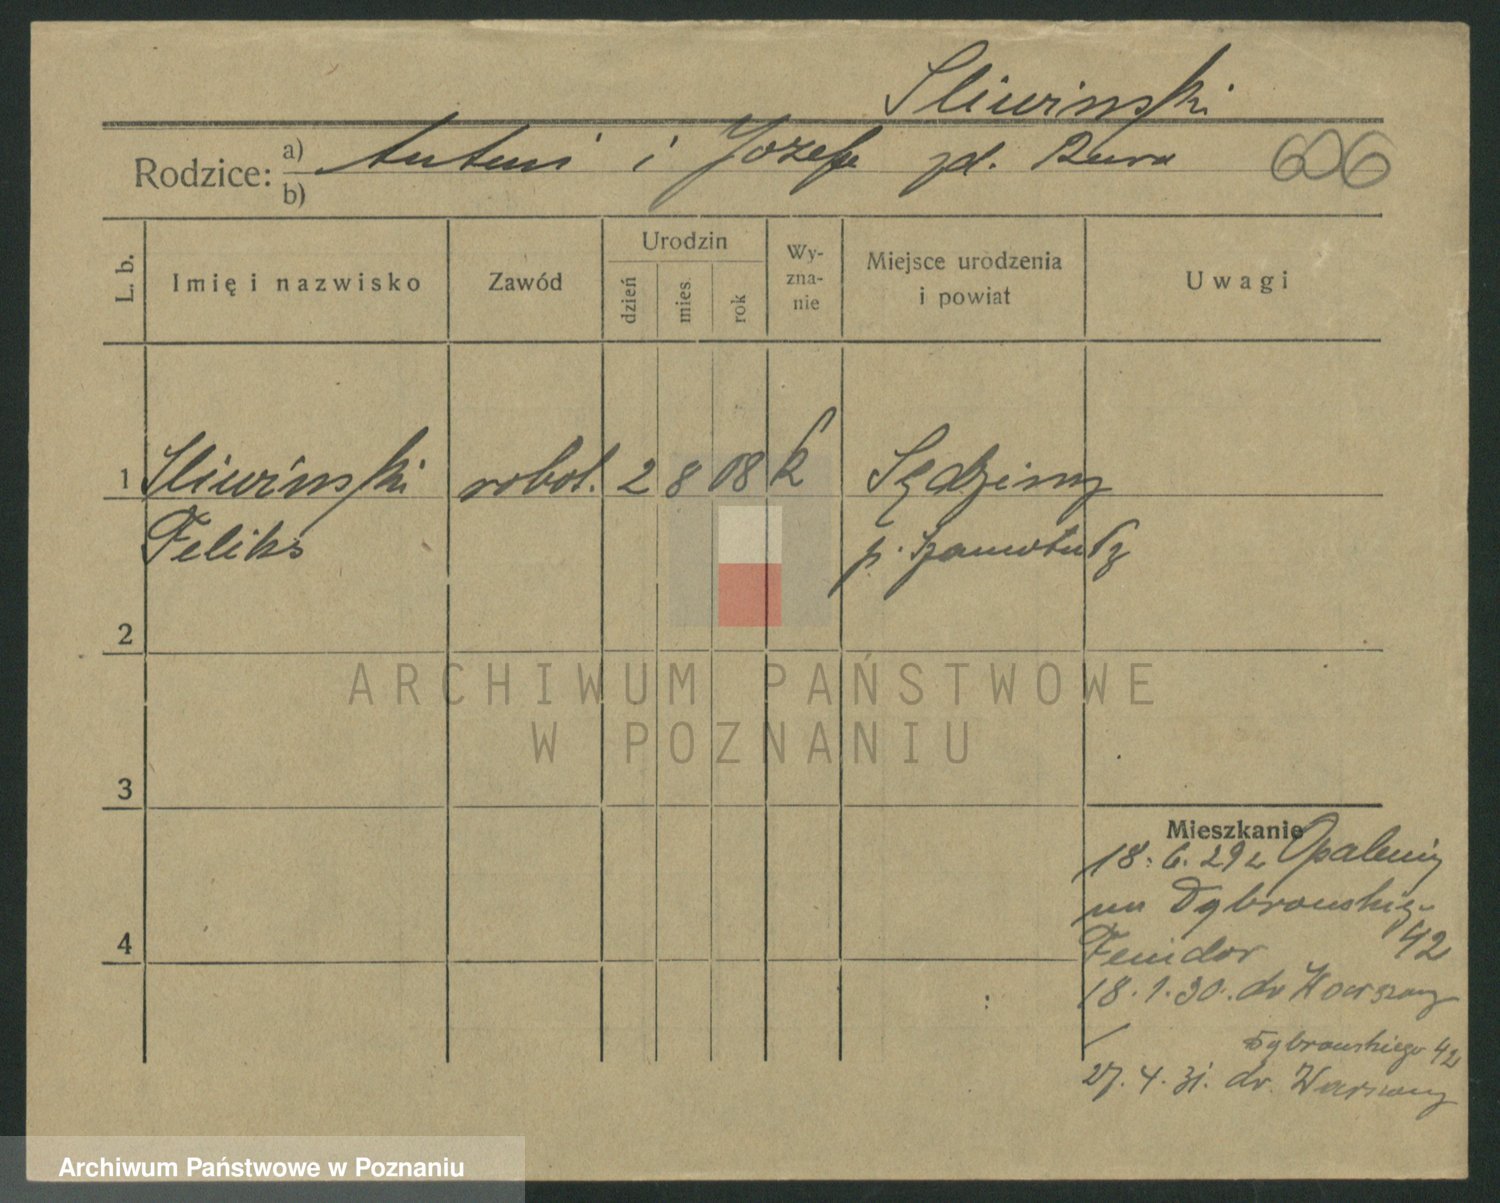 Sliwinski
Rodzice: a) Antoni i Jozefa zd. Bura
b)
606
L. b.
Imię i nazwisko
Zawód
Urodzin
dzień
mies.
rok
Wy-
zna-
nie
Miejsce urodzenia
i powiat
Uwagi
1 Sliwinski robot. 2 8 08 k Sędziny
Feliks p. Szamotuły
2
3
4
Mieszkanie
18.6.29 z Opalenicy
na Dąbrowskiego
42
18.1.30. do Warszawy
Dąbrowskiego 42
27.4.31. do Warszawy
ARCHIWUM PAŃSTWOWE
W POZNANIU
Archiwum Państwowe w Poznaniu